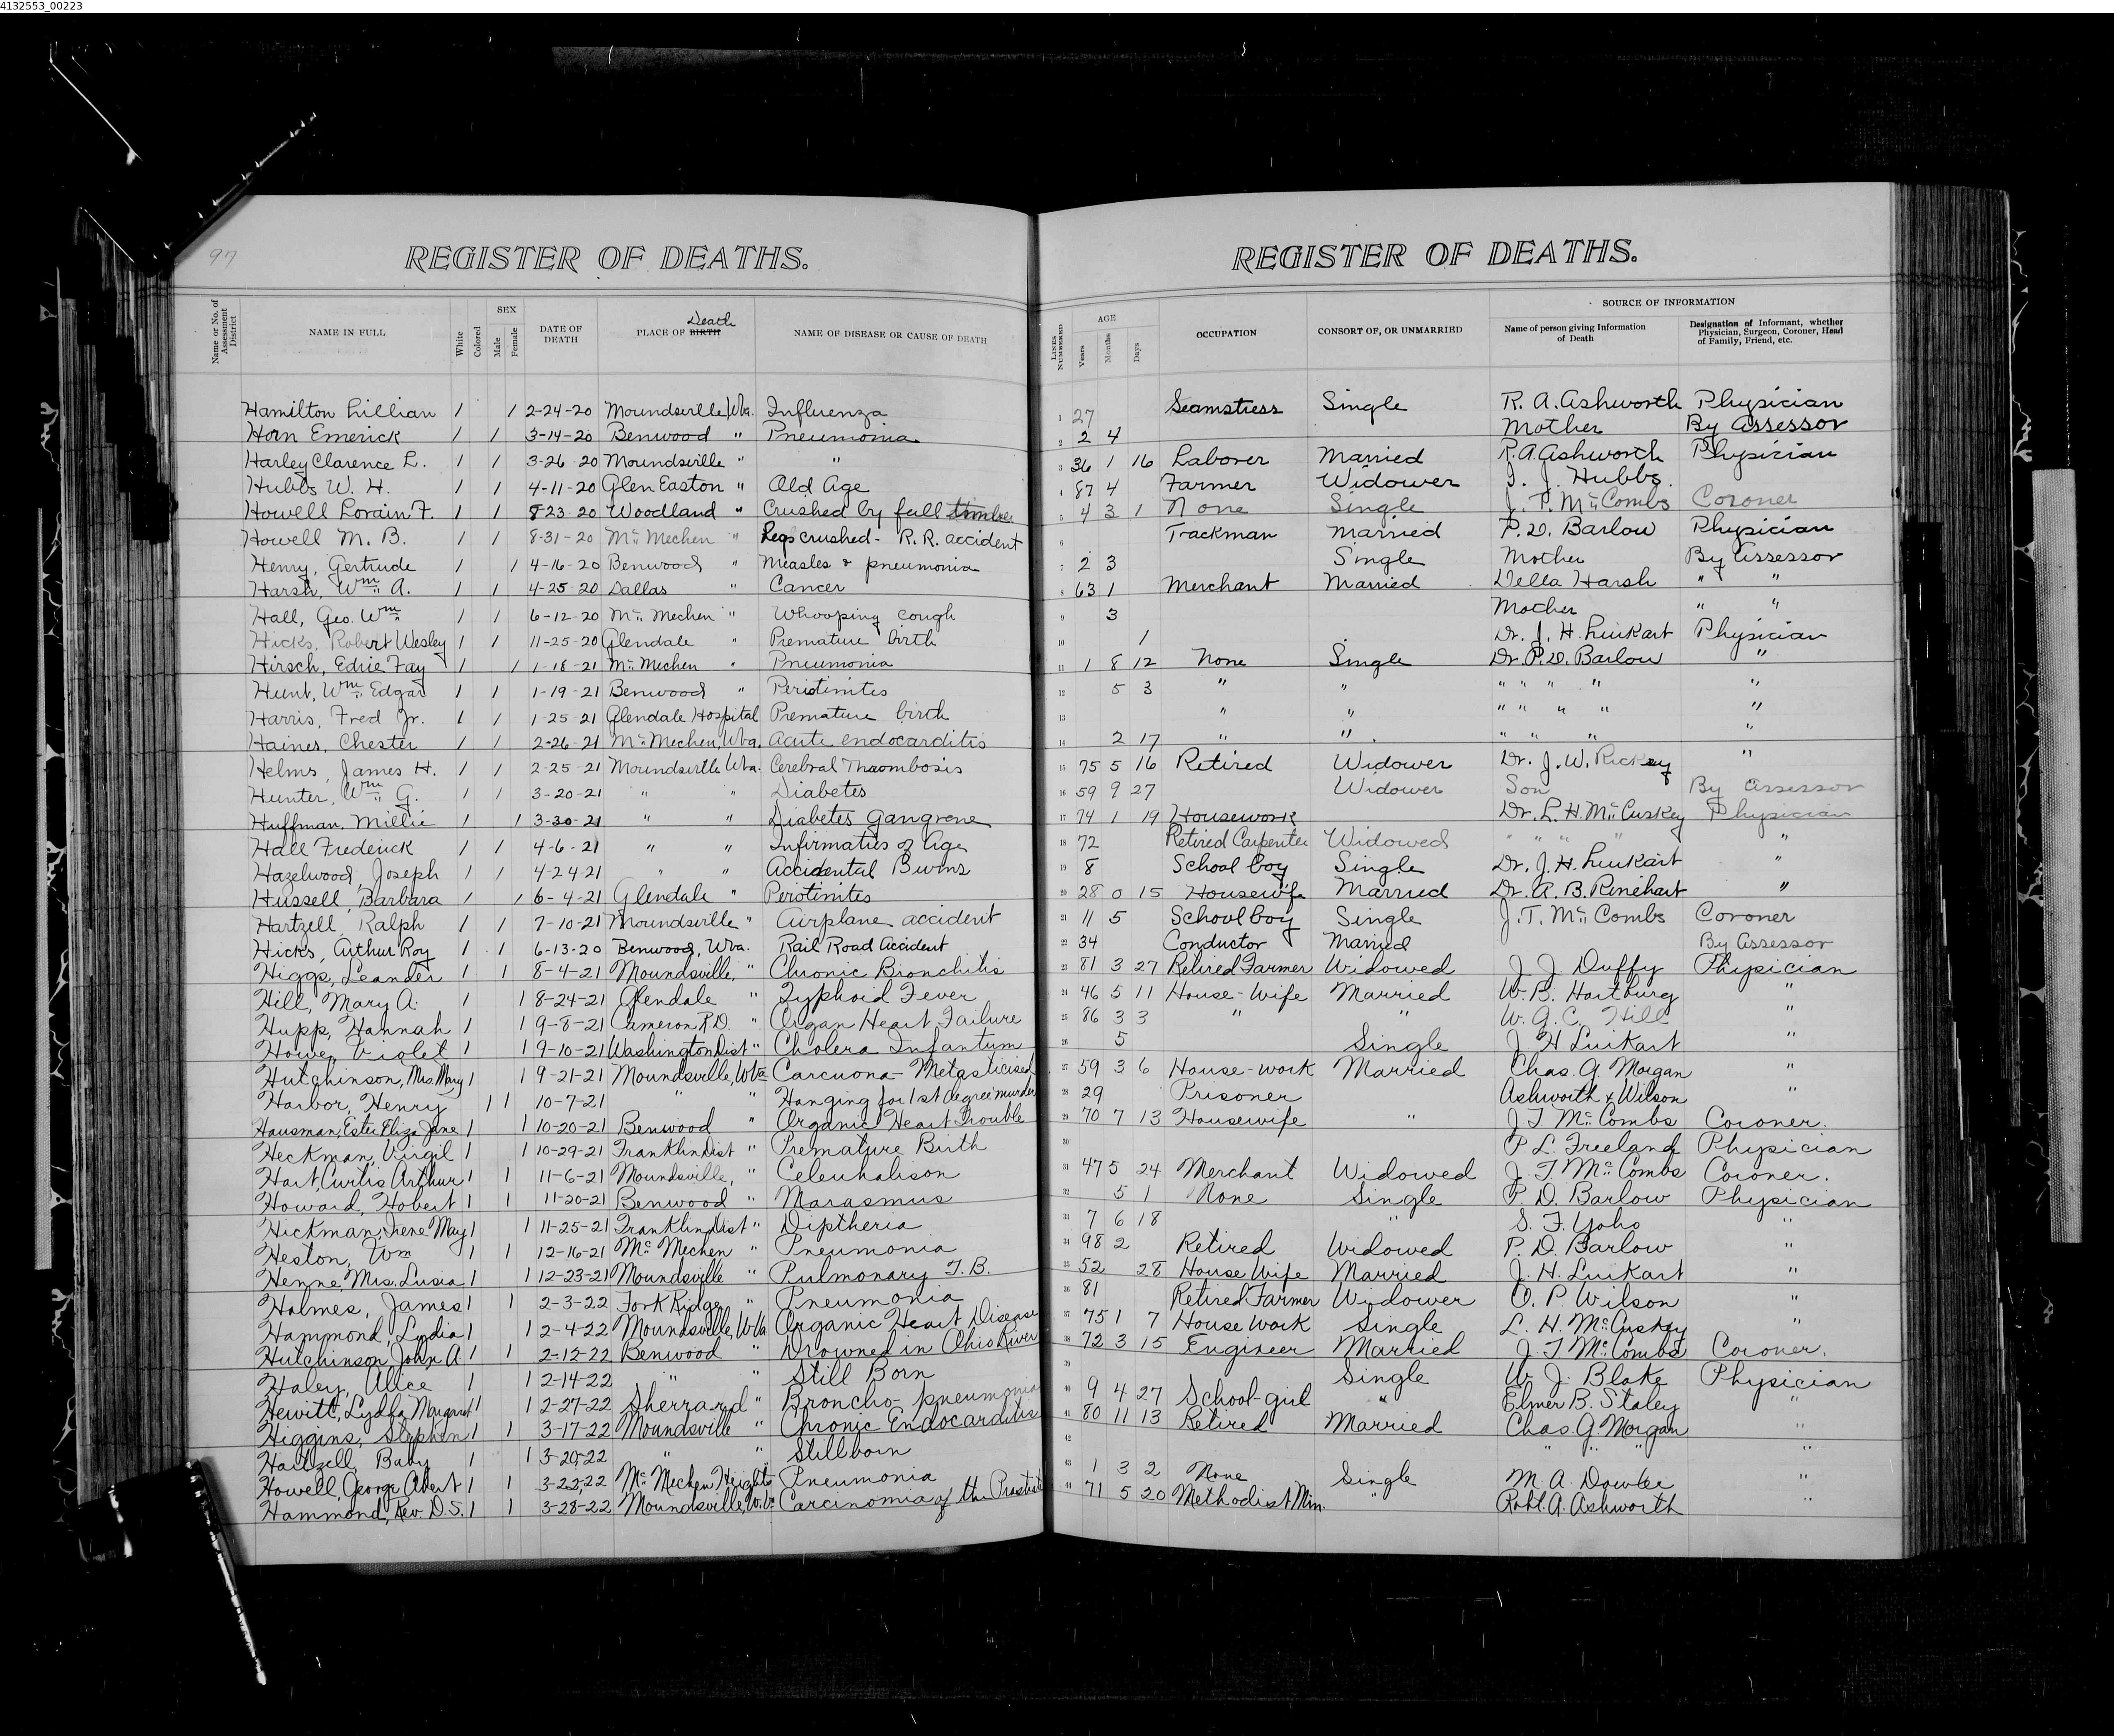 4132553_00223
97
REGISTER OF DEATHS.
Name or No. of Assessment District
NAME IN FULL
White
Colored
SEX
Male
Female
DATE OF DEATH
PLACE OF BIRTH Death
NAME OF DISEASE OR CAUSE OF DEATH
Hamilton Lillian 1 1 2-24-20 Moundsville, W Va. Influenza
Horn Emerick 1 1 3-14-20 Benwood " Pneumonia
Harley Clarence L. 1 1 3-26-20 Moundsville " "
Hubbs W. H. 1 1 4-11-20 Glen Easton " Old Age
Howell Lorain F. 1 1 8-23-20 Woodland " Crushed by fall timber
Howell M. B. 1 1 8-31-20 Mc Mechen " Legs crushed - R.R. accident
Henry, Gertrude 1 1 4-16-20 Benwood " Measles & pneumonia
Harsh, Wm A. 1 1 4-25-20 Dallas " Cancer
Hall, Geo. Wm 1 1 6-12-20 Mc Mechen " Whooping cough
Hicks, Robert Wesley 1 1 11-25-20 Glendale " Premature birth
Hirsch, Edrie Fay 1 1 1-18-21 Mc Mechen " Pneumonia
Hunt, Wm Edgar 1 1 1-19-21 Benwood " Periotinites
Harris, Fred Jr. 1 1 1-25-21 Glendale Hospital Premature birth
Haines, Chester 1 1 2-26-21 Mc Mechen, W Va. Acute endocarditis
Helms, James H. 1 1 2-25-21 Moundsville W Va. Cerebral Thaombosis
Hunter, Wm G. 1 1 3-20-21 " " Diabetes
Huffman, Millie 1 1 3-30-21 " " Diabetes Gangrene
Hall Frederick 1 1 4-6-21 " " Infirmaties of Age
Hazelwood, Joseph 1 1 4-24-21 " " Accidental Burns
Hussell, Barbara 1 1 6-4-21 Glendale " Periotinites
Hartzell, Ralph 1 1 7-10-21 Moundsville " Airplane accident
Hicks, Arthur Roy 1 1 6-13-20 Benwood, W Va. Rail Road Accident
Higgs, Leander 1 1 8-4-21 Moundsville, " Chronic Bronchitis
Hill, Mary A. 1 1 8-24-21 Glendale " Typhoid Fever
Hupp, Hannah 1 1 9-8-21 Cameron R.D. " Organ Heart Failure
Howe, Violet 1 1 9-10-21 Washington Dist " Cholera Infantum
Hutchinson, Mrs. Mary 1 1 9-21-21 Moundsville, W Va Carcuona - Metasticised
Harbor, Henry 1 1 10-7-21 " " Hanging for 1st degree murder
Hausman, Ester Eliza Jane 1 1 10-20-21 Benwood " Organic Heart Trouble
Heckman, Virgil 1 1 10-29-21 Franklin Dist " Premature Birth
Hart, Curtis Arthur 1 1 11-6-21 Moundsville, "
Howard, Hobert 1 1 11-20-21 Benwood " Marasmus
Hickman, Irene May 1 1 11-25-21 Franklin Dist " Diptheria
Heston, Wm 1 1 12-16-21 Mc Mechen " Pneumonia
Henne, Mrs. Lusia 1 1 12-23-21 Moundsville " Pulmonary T.B.
Holmes, James 1 1 2-3-22 Fork Ridge " Pneumonia
Hammond, Lydia 1 1 2-4-22 Moundsville, W Va Organic Heart Disease
Hutchinson, John A 1 1 2-12-22 Benwood " Drowned in Ohio River
Haley, Alice 1 1 2-14-22 " " Still Born
Hewitt, Lydia Margaret 1 1 2-27-22 Sherrard " Broncho-pneumonia
Higgins, Stephen 1 1 3-17-22 Moundsville " Chronic Endocarditis
Hartzell, Baby 1 1 3-20-22 " " Stillborn
Howell, George Albert 1 1 3-22-22 Mc Mechen Heights Pneumonia
Hammond, Rev. D.S. 1 1 3-28-22 Moundsville, W.Va Carcinomia of the
REGISTER OF DEATHS.
LINES NUMBERED
AGE
Years
Months
Days
OCCUPATION
CONSORT OF, OR UNMARRIED
SOURCE OF INFORMATION
Name of person giving Information of Death
Designation of Informant, whether Physician, Surgeon, Coroner, Head of Family, Friend, etc.
1 27 Seamstress Single R. A. Ashworth Physician
2 2 4 Mother By Assessor
3 36 1 16 Laborer Married R. A. Ashworth Physician
4 87 4 Farmer Widower J. Hubbs.
5 4 3 1 None Single J. T. Mc Combs Coroner
6 Trackman Married P. D. Barlow Physician
7 2 3 Single Mother By Assessor
8 63 1 Merchant Married Della Harsh " "
9 3 Mother " "
10 1 Dr. J. H. Luikart Physician
11 1 8 12 None Single Dr. P. D. Barlow "
12 5 3 " " " " " " "
13 " " " " " " "
14 2 17 " " " " " "
15 75 5 16 Retired Widower Dr. J. W. Rickey "
16 59 9 27 Widower Son By Assessor
17 74 1 19 Housework Dr. L. H. Mc Cuskey Physician
18 72 Retired Carpenter Widowed " " " " "
19 8 School boy Single Dr. J. H. Luikart "
20 28 0 15 Housewife Married Dr. A. B. Rinehart "
21 11 5 School boy Single J. T. Mc Combs Coroner
22 34 Conductor Married By Assessor
23 81 3 27 Retired Farmer Widowed J J Duffy Physician
24 46 5 11 House-Wife Married W. B. Hartburg "
25 86 3 3 " " W. G. C. Hill "
26 5 Single J H Luikart "
27 59 3 6 House-work Married Chas. G Morgan "
28 29 Prisoner Ashworth & Wilson "
29 70 7 13 Housewife " J T Mc Combs Coroner.
30 P L. Freeland Physician
31 47 5 24 Merchant Widowed J. T. Mc Combs Coroner.
32 5 1 None Single P. D. Barlow Physician
33 7 6 18 " S. F. Yoho "
34 98 2 Retired Widowed P. D. Barlow "
35 52 28 House Wife Married J. H. Luikart "
36 81 Retired Farmer Widower O. P. Wilson "
37 75 1 7 House Work Single L. H. Mc Cuskey "
38 72 3 15 Engineer Married J T Mc Combs Coroner.
39 Single W. J. Blake Physician
40 9 4 27 School-girl " Elmer B. Staley "
41 80 11 13 Retired Married Chas. G. Morgan "
42 " " " "
43 1 3 2 None Single M. A. Dowler "
44 71 5 20 Methodist Min. " Robt. A. Ashworth "